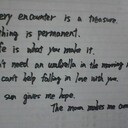 ery encounter is a treasure.
thing is permanent.
fe is what you make it.
n't need an umbrella in the morning
can't help falling in love with you.
sun gives me hope.
The moon makes me